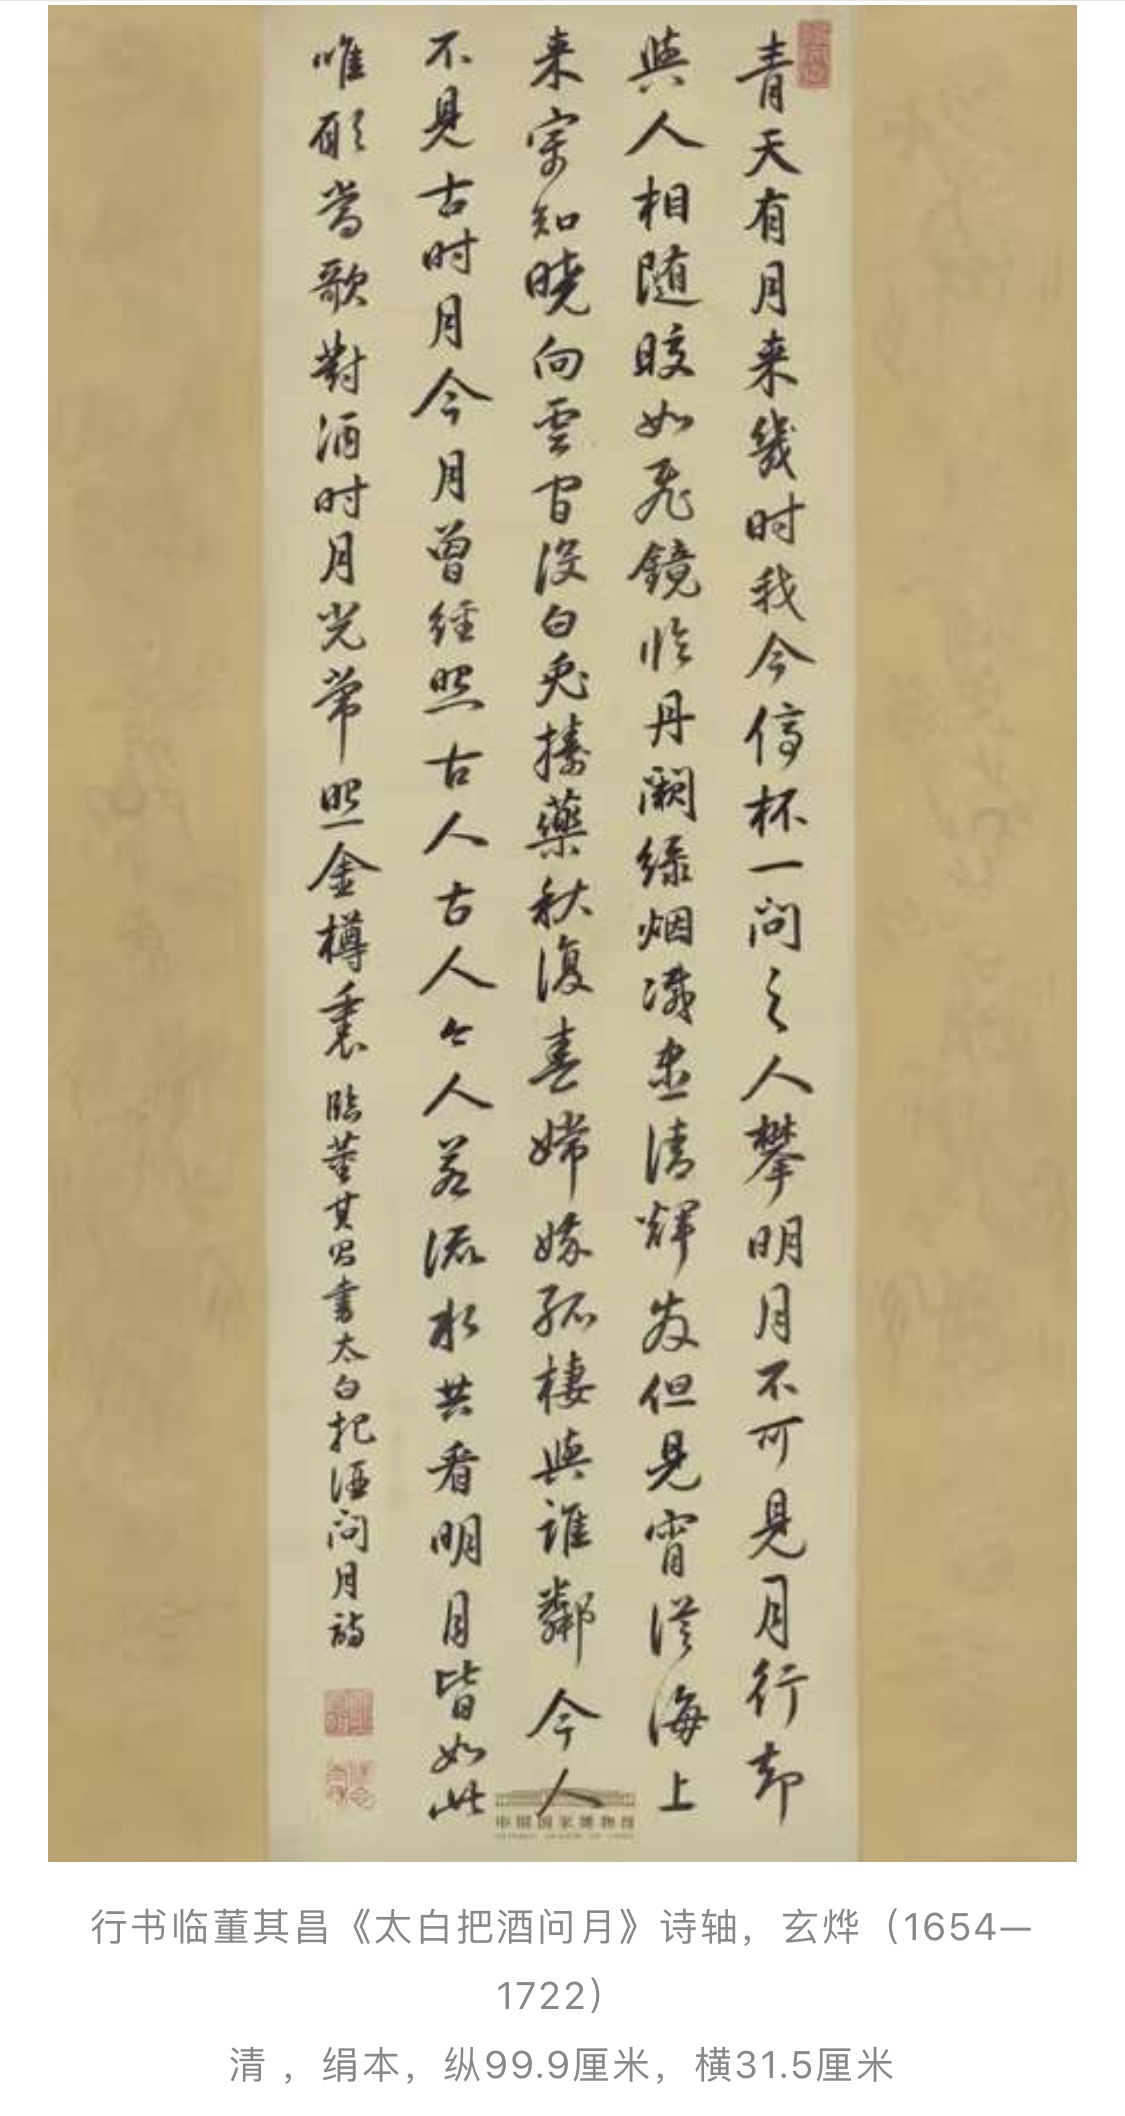 青天有月来幾时我今停杯一问之人攀明月不可見月行却
與人相随皎如飛鏡临丹闕緑烟滅盡清輝发但見宵從海上
来寧知曉向雲间没白兎擣藥秋復春嫦娥孤棲與誰鄰今人
不見古时月今月曾經照古人古人今人若流水共看明月皆如此
唯願當歌對酒时月光常照金樽裏 臨董其昌書太白把酒问月詩
中国国家博物馆
行书临董其昌《太白把酒问月》诗轴，玄烨（1654—
1722）
清 ，绢本，纵99.9厘米，横31.5厘米